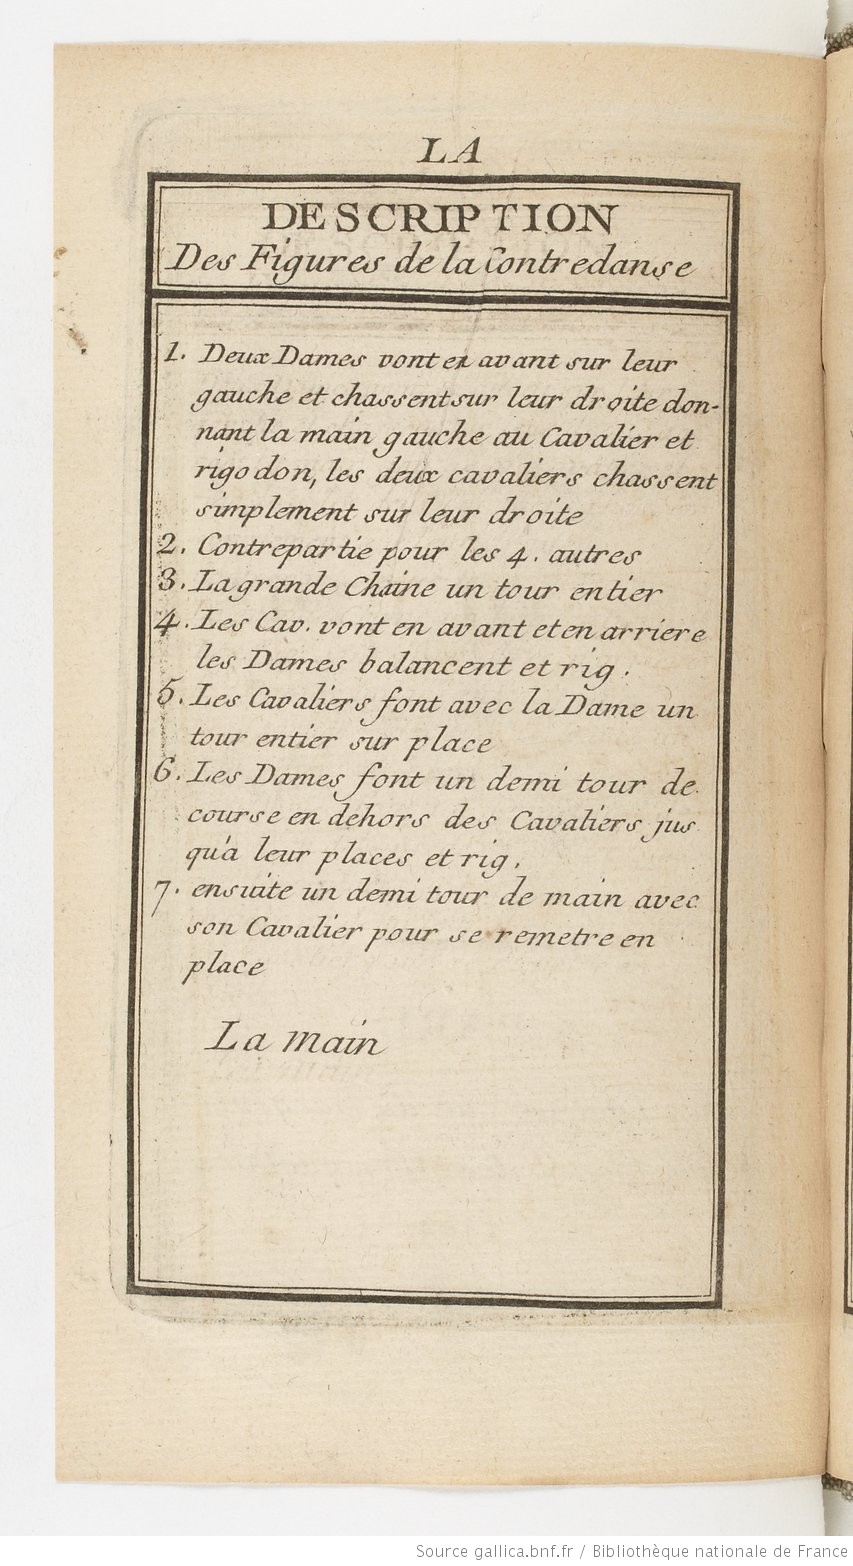 LA
DESCRIPTION
Des Figures de la Contredanse
1. Deux Dames vont en avant sur leur
gauche et chassent sur leur droite don-
nant la main gauche au Cavalier et
rigodon, les deux cavaliers chassent
simplement sur leur droite
2. Contrepartie pour les 4. autres
3. La grande Chaine un tour entier
4. Les Cav. vont en avant et en arriere
les Dames balancent et rig.
5. Les Cavaliers font avec la Dame un
tour entier sur place
6. Les Dames font un demi tour de
course en dehors des Cavaliers jus
qu'a leur places et rig.
7. ensuite un demi tour de main avec
son Cavalier pour se remetre en
place
La main
Source gallica.bnf.fr / Bibliothèque nationale de France